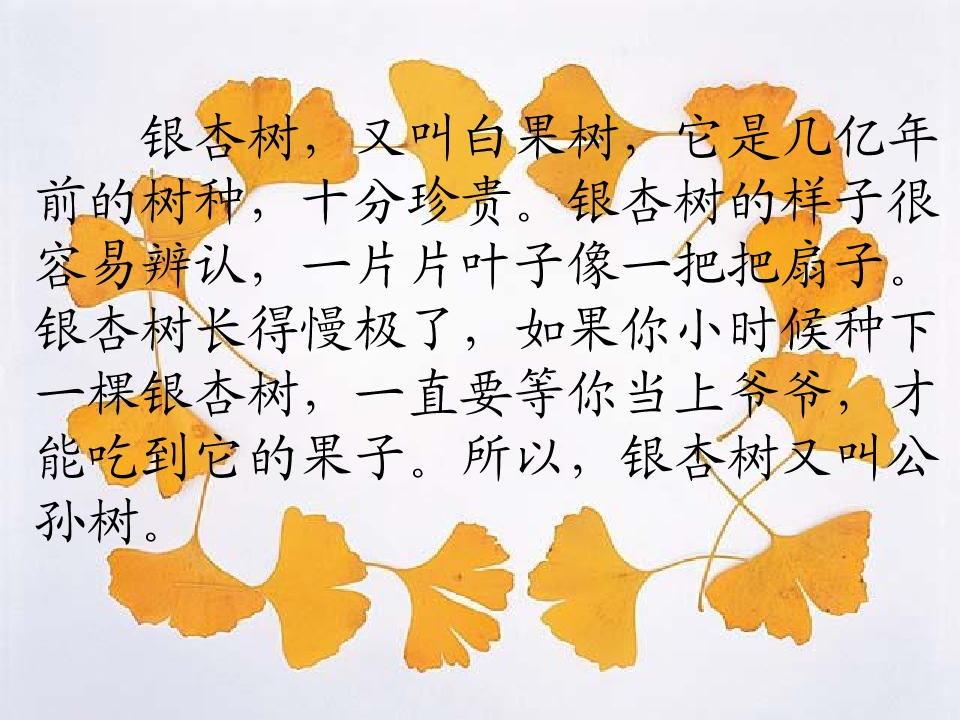 银杏树，又叫白果树，它是几亿年
前的树种，十分珍贵。银杏树的样子很
容易辨认，一片片叶子像一把把扇子。
银杏树长得慢极了，如果你小时候种下
一棵银杏树，一直要等你当上爷爷，才
能吃到它的果子。所以，银杏树又叫公
孙树。